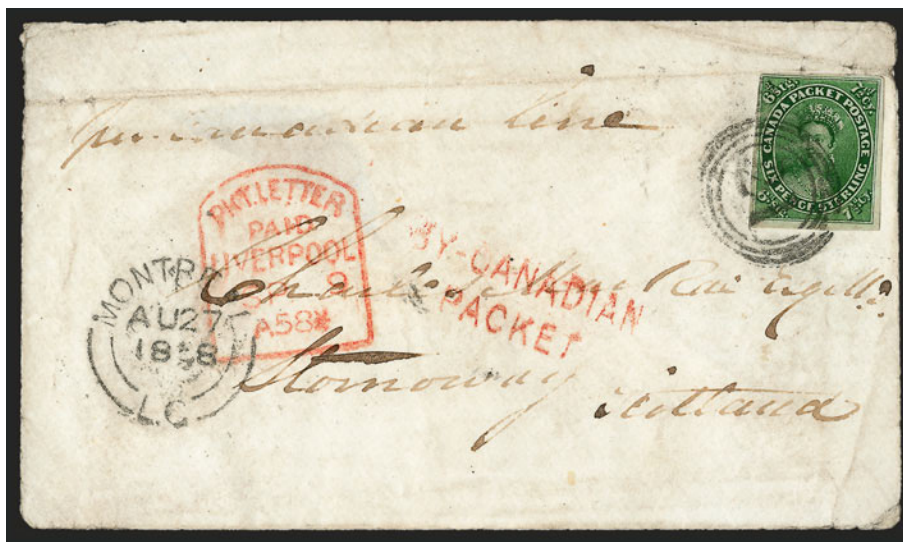 per Canadian line
6d stg. 7½d cy.
CANADA PACKET POSTAGE
SIX PENCE STERLING
6d stg. 7½d cy.
PKT. LETTER
PAID
LIVERPOOL
9
A58
BY-CANADIAN
PACKET
MONTR
AU 27
1858
L.C
Charles
Stornoway
Scotland